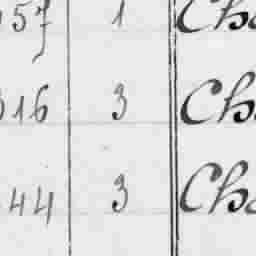 57 1 Cha
916 3 Ch
44 3 Cha